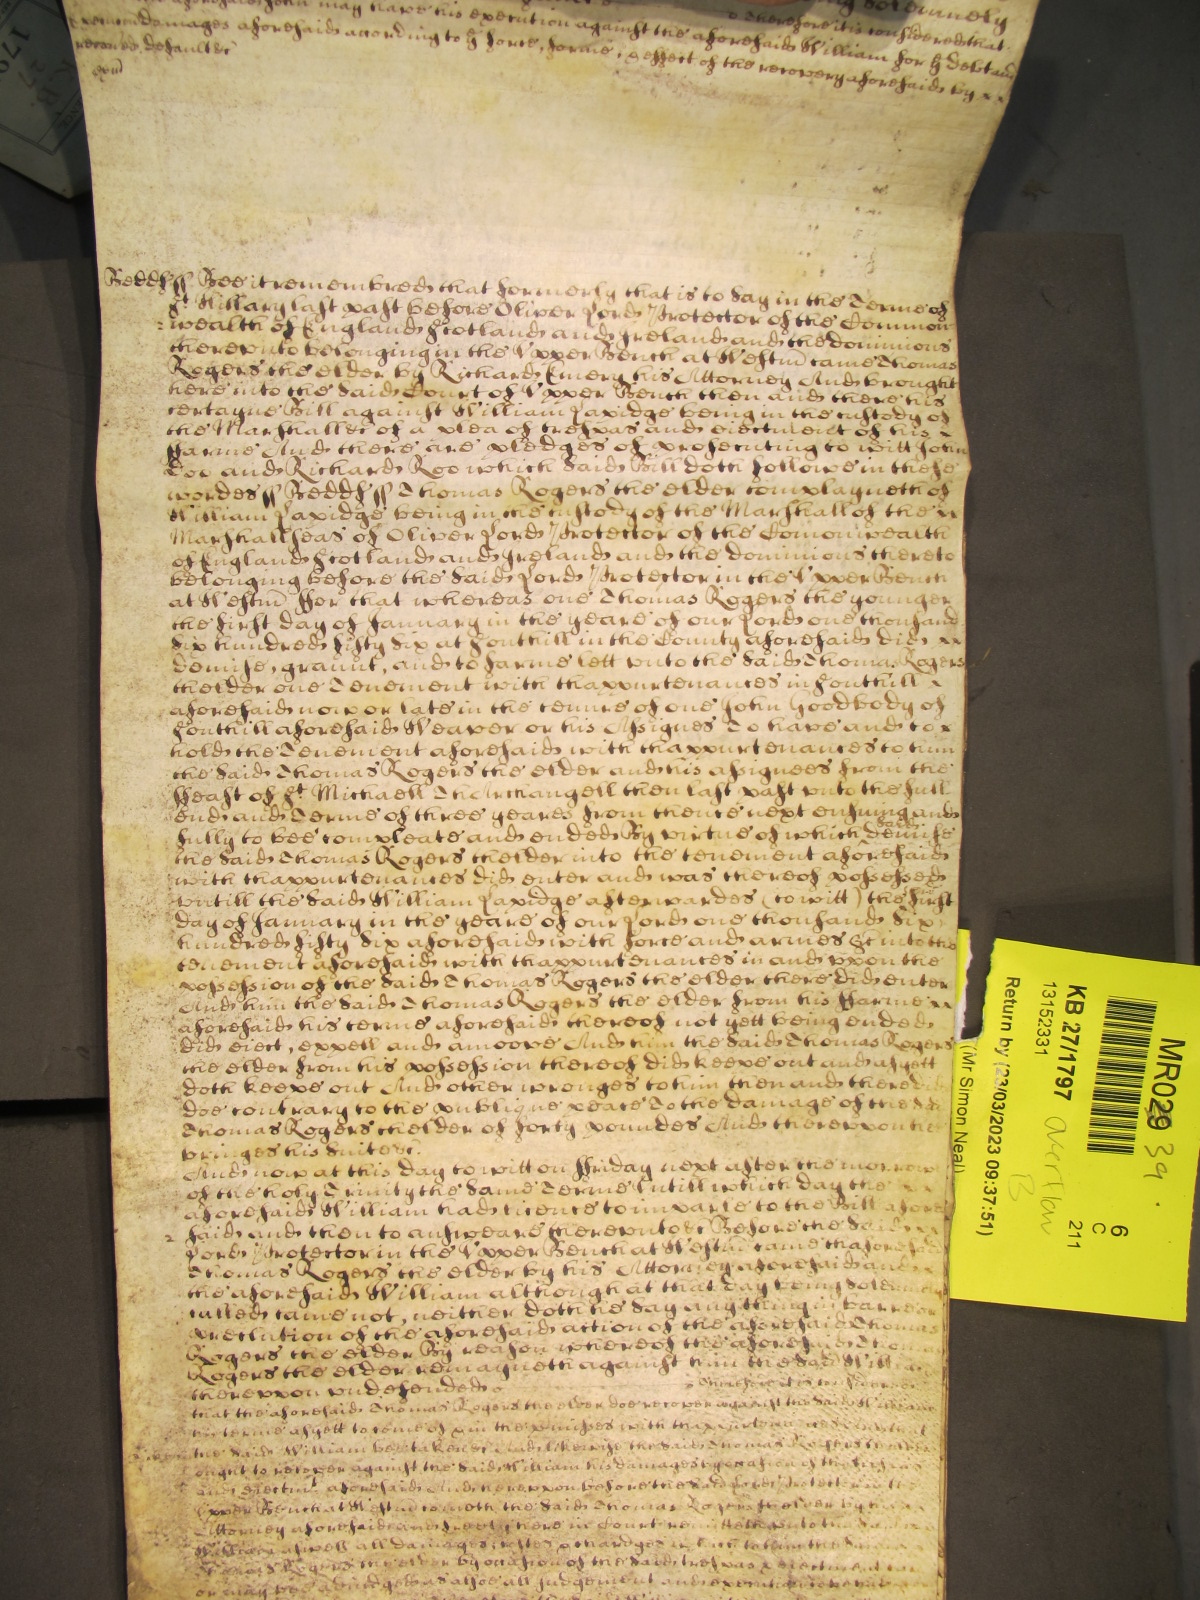 aforesaid John may have his execution against the aforesaid William for ye debt and
damages aforesaid according to ye force, forme, & effect of the recovery aforesaid by
default &c
Bedds ss Bee it remembred that formerly that is to say in the Terme of
St Hillary last past before Oliver Lord Protector of the Common
wealth of England Scotland and Ireland and the dominions
thereunto belonging in the Upper Bench at Westmr came Thomas
Rogers the elder by Richard Emery his Attorney And brought
here into the said Court of Upper Bench then and there his
certayne Bill against William Laxidge being in the custody of
the Marshall &c of a plea of trespas and eiectment of his
ffarme And there are pledges of prosecuting to witt John
Doo and Richard Roo which said Bill doth followe in these
wordes ss Bedds ss Thomas Rogers the elder complayneth of
William Laxidge being in the custody of the Marshall of the
Marshallseas of Oliver Lord Protector of the Comonwealth
of England Scotland and Ireland and the dominions thereto
belonging before the said Lord Protector in the Upper Bench
at Westmr ffor that whereas one Thomas Rogers the younger
the first day of January in the yeare of our Lord one thousand
six hundred fifty six at Southill in the County aforesaid did
demise, graunt, and to farme lett unto the said Thomas Rogers
thelder one Tenement with thappurtenances in Southill
aforesaid now or late in the tenure of one John Goodbody of
Southill aforesaid Weaver or his Assignes To have and to
hold the Tenement aforesaid with thappurtenances to him
the said Thomas Rogers the elder and his assignees from the
ffeast of St Michaell Tharchangell then last past unto the full
end and Terme of three yeares from thence next ensuing and
fully to bee compleate and ended By virtue of which said demise
the said Thomas Rogers thelder into the tenement aforesaid
with thappurtenances did enter and was thereof possessed
untill the said William Laxidge afterwardes (to witt) the first
day of January in the yeare of our Lord one thousand six
hundred fifty six aforesaid with force and armes &c into the
tenement aforesaid with thappurtenances in and uppon the
possession of the said Thomas Rogers the elder there did enter
And him the said Thomas Rogers the elder from his ffarme
aforesaid his terme aforesaid thereof not yett being ended
did eiect, expell and amoove And him the said Thomas Rogers
the elder from his possession thereof did keepe out and as yett
doth keepe out And other wronges to him then and there did
doe contrary to the publique peace To the damage of the said
Thomas Rogers thelder of forty poundes And thereuppon he
bringes his suite &c.
And now at this day to witt on ffriday next after the morrow
of the holy Trinity the same Terme Untill which day the
aforesaid William had licence to imparle to the Bill afore
said and then to answeare thereunto &c Before the said
Lord Protector in the Upper Bench at Westmr came thaforesaid
Thomas Rogers the elder by his Attorney aforesaid and
the aforesaid William although at that day being solemnely
called came not, neither doth he say any thing in barre or
preclution of the aforesaid action of the aforesaid Thomas
Rogers the elder By reason whereof the aforesaid Thomas
Rogers the elder remayneth against him the said William
thereuppon undefended.
Therefore it is considered
that the aforesaid Thomas Rogers the elder doe recover against the said William
his terme as yett to come of & in the premises with thappurtenances
the said William bee taken &c And likewise the said Thomas Rogers the elder
ought to recover against the said William his damages by occasion of the trespas
and eiectmt aforesaid And hereuppon before the said Lord Protector in the
Upper Bench at Westmr cometh the said Thomas Rogers the elder by his
Attorney aforesaid and freely here in Court remitteth unto the said
William aswell all damages, costes & chardges
Thomas Rogers the elder by occasion of the said trespas & eiectment
or may bee adiudged as alsoe all judgement and execution
MR029
39
6
C
211
KB 27/1797
overflow
B
13152331
Return by (23/03/2023 09:37:51)
(Mr Simon Neal)